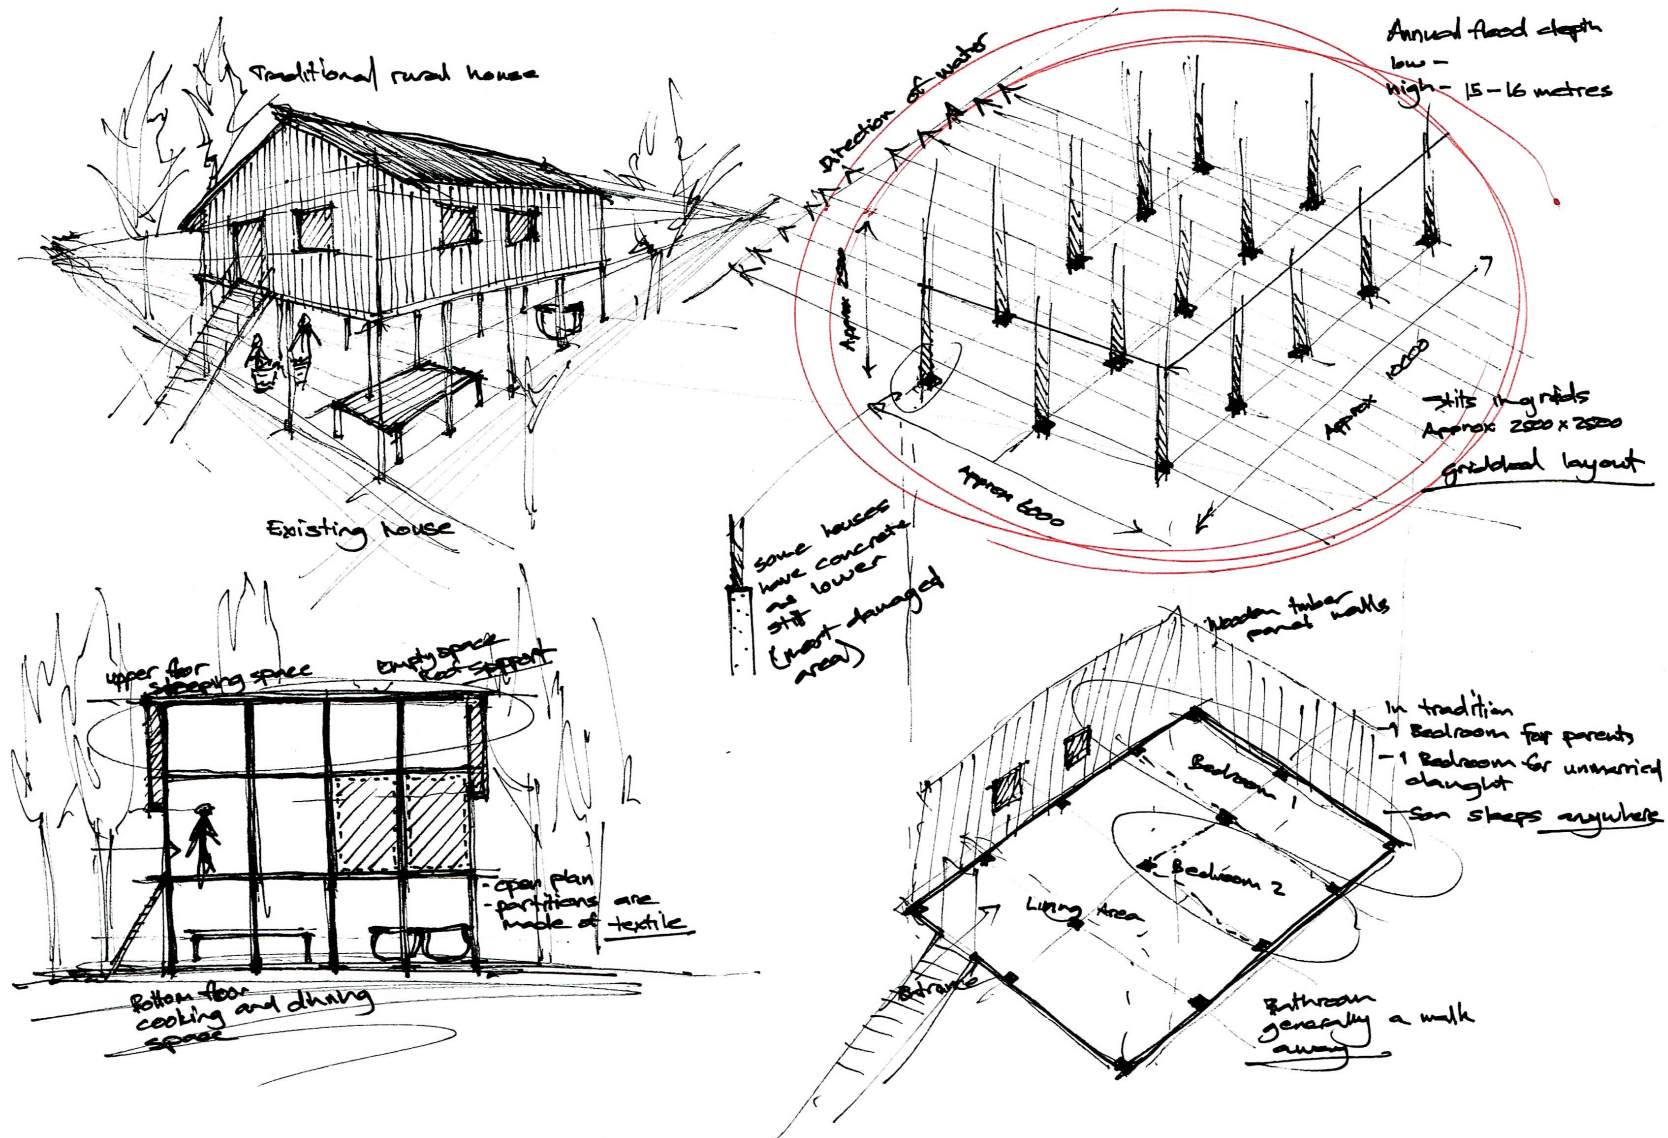 Traditional rural house
Existing house
Direction of water
Annual flood depth
low -
high - 15-16 metres
Approx 2500
Approx 6000
Approx 10000
Stilts in grids
Approx 2500 x 2500
gridded layout
some houses
have concrete
as lower
stilt
(most damaged
area)
upper floor
sleeping space
Empty space
Roof support
- open plan
- partitions are
made of textile
Bottom floor
cooking and dinning
space
Wooden timber
panel walls
In tradition
- 1 Bedroom for parents
- 1 Bedroom for unmarried
daught
- Son sleeps anywhere
Bedroom 1
Bedroom 2
Living Area
Entrance
Bathroom
generally a walk
away